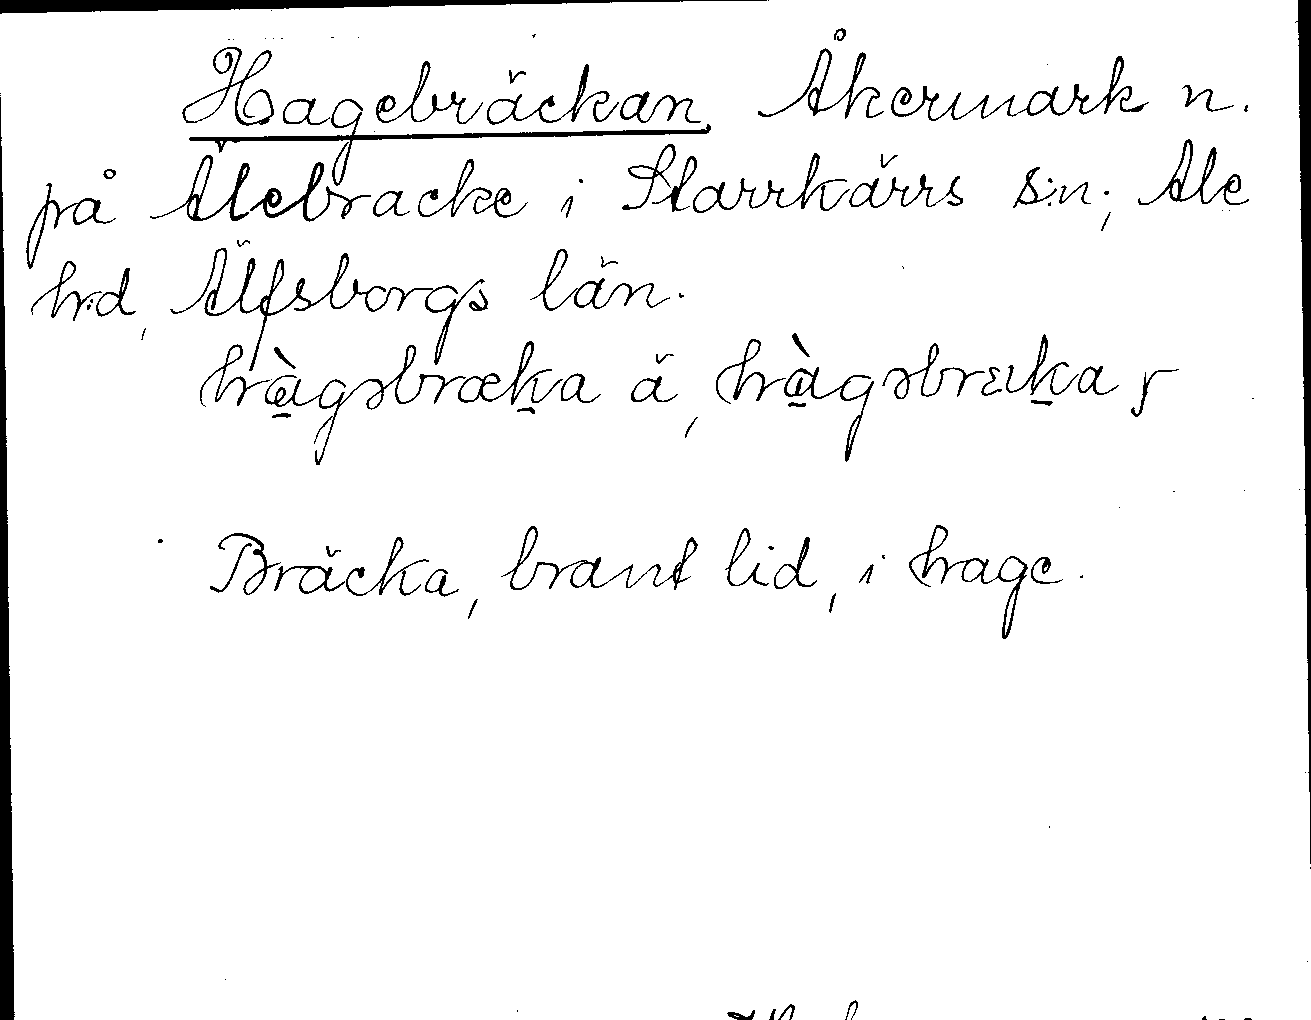 Hagebräckan, Åkermark n.
på Älebracke i Starrkärrs s:n, Ale
hrd, Älfsborgs län.
hàgəbræka ä, hàgəbrɛka,
Bräcka, brant lid, i hage.